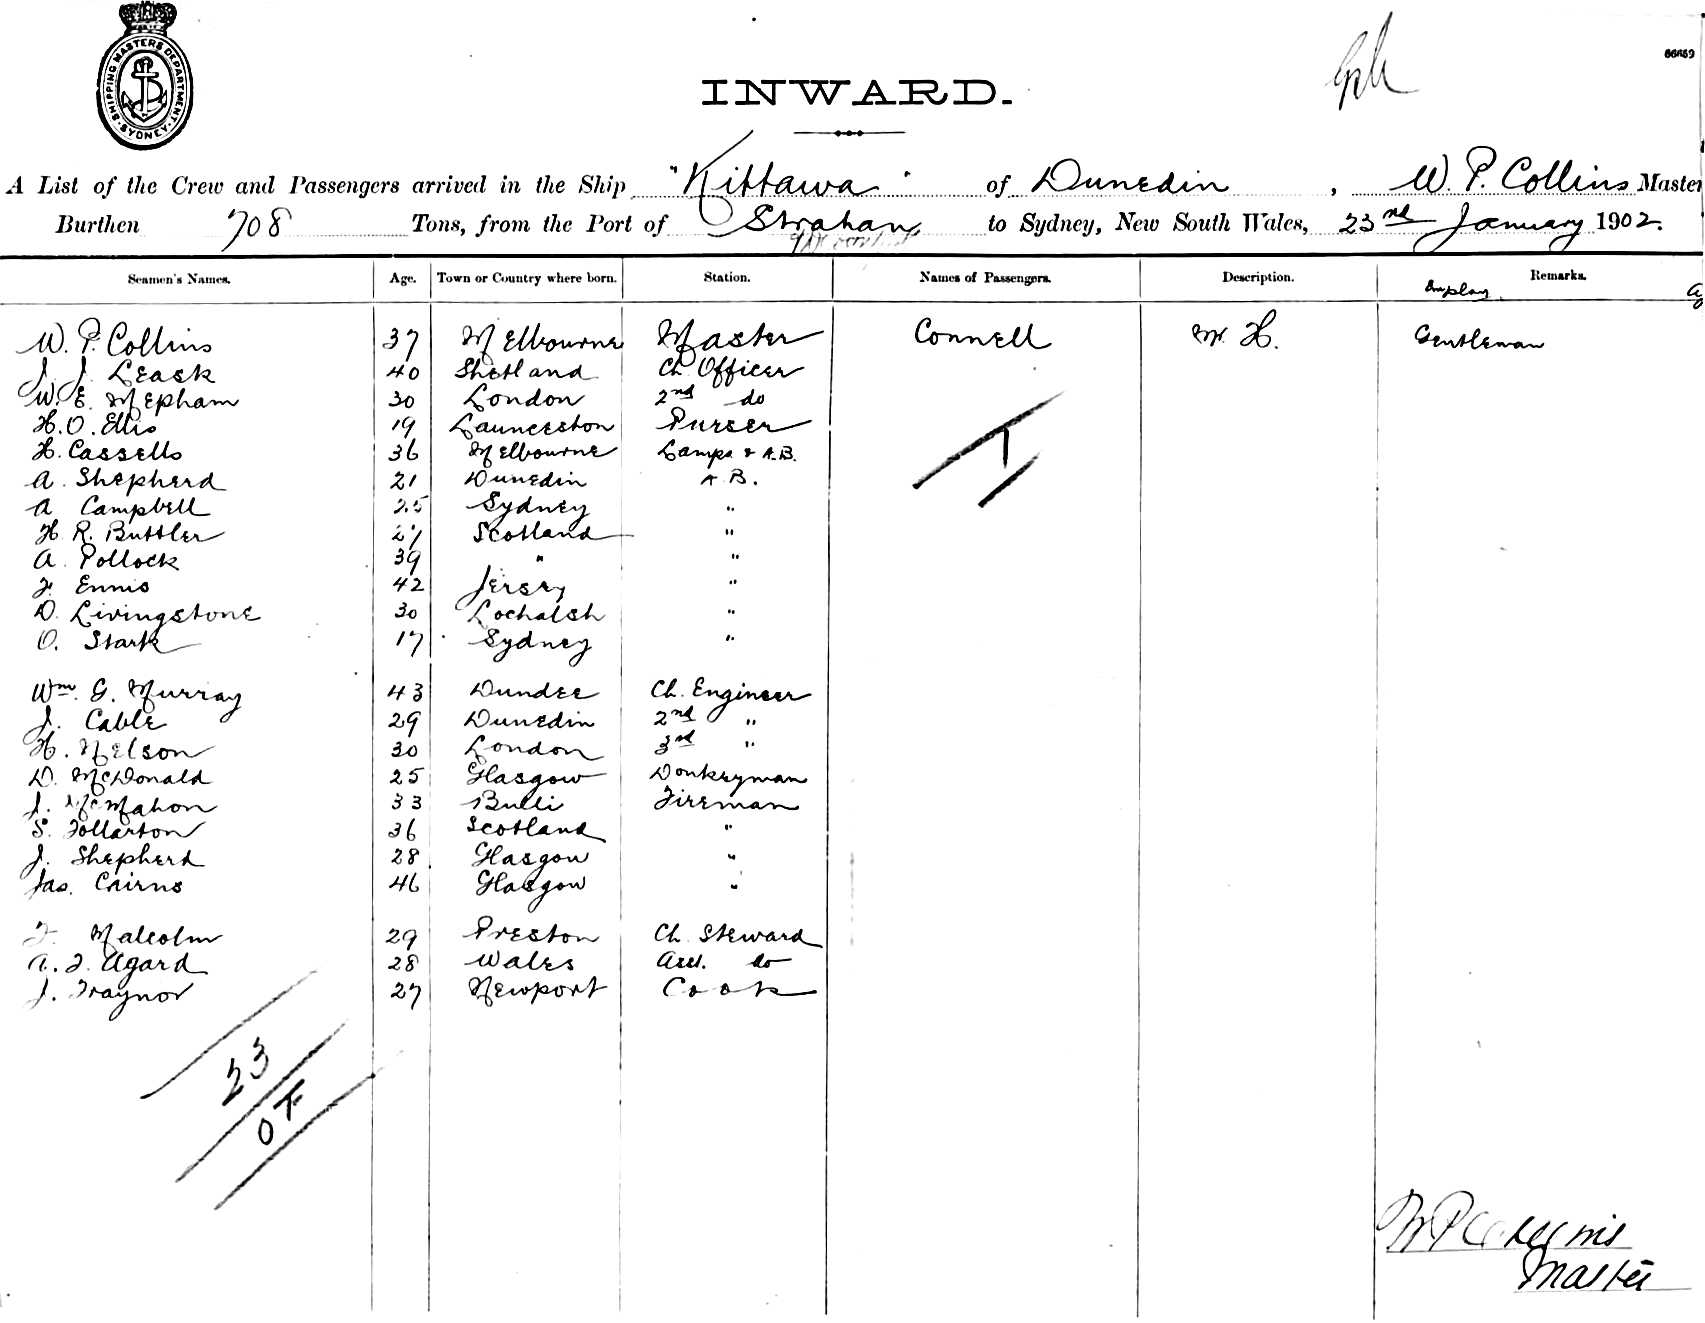 SHIPPING MASTERS DEPARTMENT. SYDNEY.
66659
INWARD.
A List of the Crew and Passengers arrived in the Ship "Kittawa" of Dunedin, W. P. Collins Master
Burthen 708 Tons, from the Port of Strahan to Sydney, New South Wales, 23nd January 1902.
Seamen's Names. Age. Town or Country where born. Station. Names of Passengers. Description. Employ. Remarks.
W. P. Collins 37 Melbourne Master Connell Mr H. Gentleman
J. J. Leask 40 Shetland Ch Officer
W. E. Mepham 30 London 2nd do
H. O. Ellis 19 Launceston Purser
H. Cassells 36 Melbourne Lamps & A.B.
A. Shepherd 21 Dunedin A.B.
A Campbell 25 Sydney "
H R. Buttler 27 Scotland "
A. Pollock 39 " "
F. Ennis 42 Jersey "
D. Livingstone 30 Lochalsh "
O. Stark 17 Sydney "
Wm. G. Murray 43 Dundee Ch. Engineer
J. Cable 29 Dunedin 2nd "
H. Nelson 30 London 3rd "
D. McDonald 25 Glasgow Donkeyman
J. McMahon 33 Bulli Fireman
S. Follarton 36 Scotland "
J. Shepherd 28 Glasgow "
Jas. Cairns 46 Glasgow "
F. Malcolm 29 Preston Ch. Steward
A. F. Agard 28 Wales Asst. do
J. Traynor 27 Newport Cook
1
23
W P Collins
Master